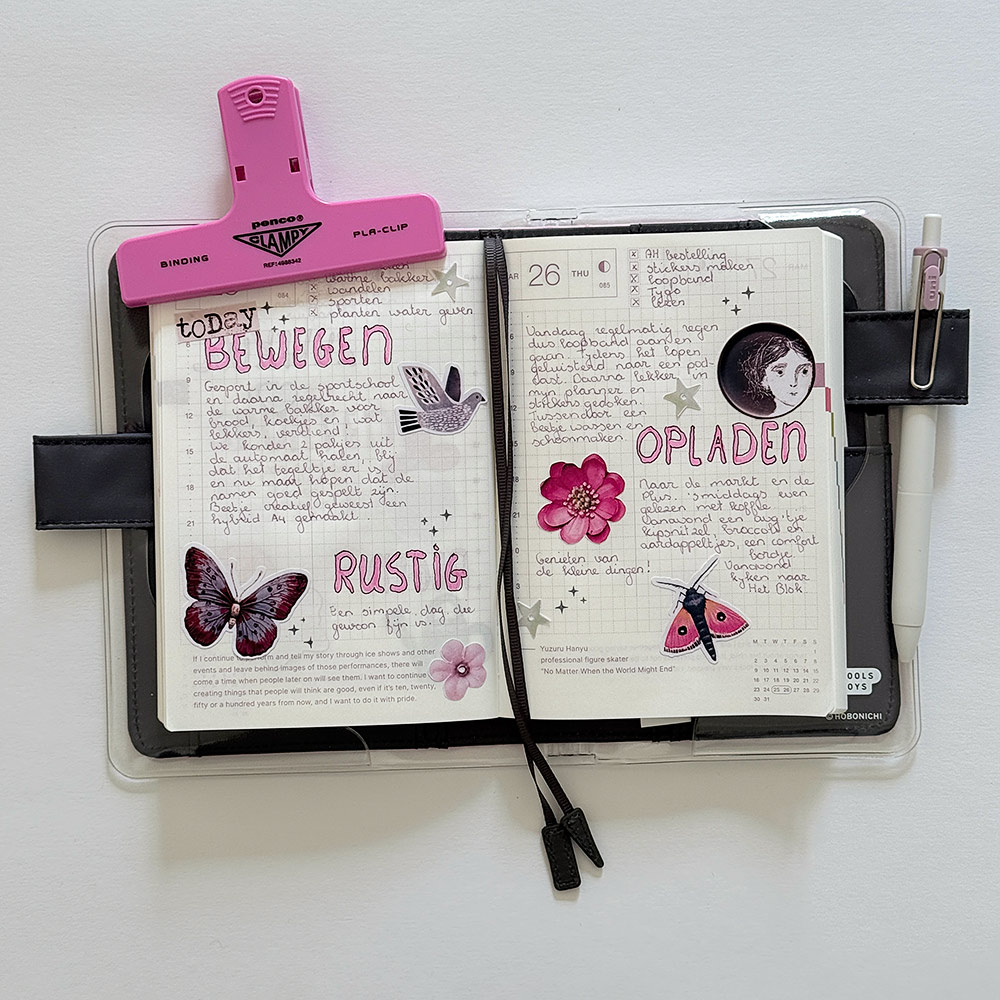 penco®
CLAMPY
BINDING
PLA-CLIP
warme bakker
wandelen
sporten
planten water geven
today
BEWEGEN
Gesport in de sportschool
en daarna regelrecht naar
de warme bakker voor
brood, koekjes en wat
lekkers, verdiend!
We konden 2 pakjes uit
de automaat halen, blij
dat het tegeltje er is
en nu maar hopen dat de
namen goed gespelt zijn.
Beetje creatief geweest een
hybrid A4 gemaakt..
RUSTIG
Een simpele dag die
gewoon fijn is.
If I continue to perform and tell my story through ice shows and other
events and leave behind images of those performances, there will
come a time when people later on will see them. I want to continue
creating things that people will think are good, even if it's ten, twenty,
fifty or a hundred years from now, and I want to do it with pride.
AR 26 THU
085
AH bestelling
stickers maken
loopband
Typo
lezen
Vandaag regelmatig regen
dus loopband aan en
gaan. Tijdens het lopen
geluisterd naar een pod-
cast. Daarna lekker in
mijn planner en
stickers gedoken.
Tussendoor een
beetje wassen en
schoonmaken
OPLADEN
Naar de markt en de
Plus. 's middags even
gelezen met koffie.
Vanavond een
kipsnitzel, broccoli en
aardappeltjes, een comfort
bordje.
Vanavond
kijken naar
Het Blok.
Genieten van
de kleine dingen!
Yuzuru Hanyu
professional figure skater
"No Matter When the World Might End"
M T W T F S S
1
2 3 4 5 6 7 8
9 10 11 12 13 14 15
16 17 18 19 20 21 22
23 24 25 26 27 28 29
30 31
OOLS
OYS
©HOBONICHI
uni